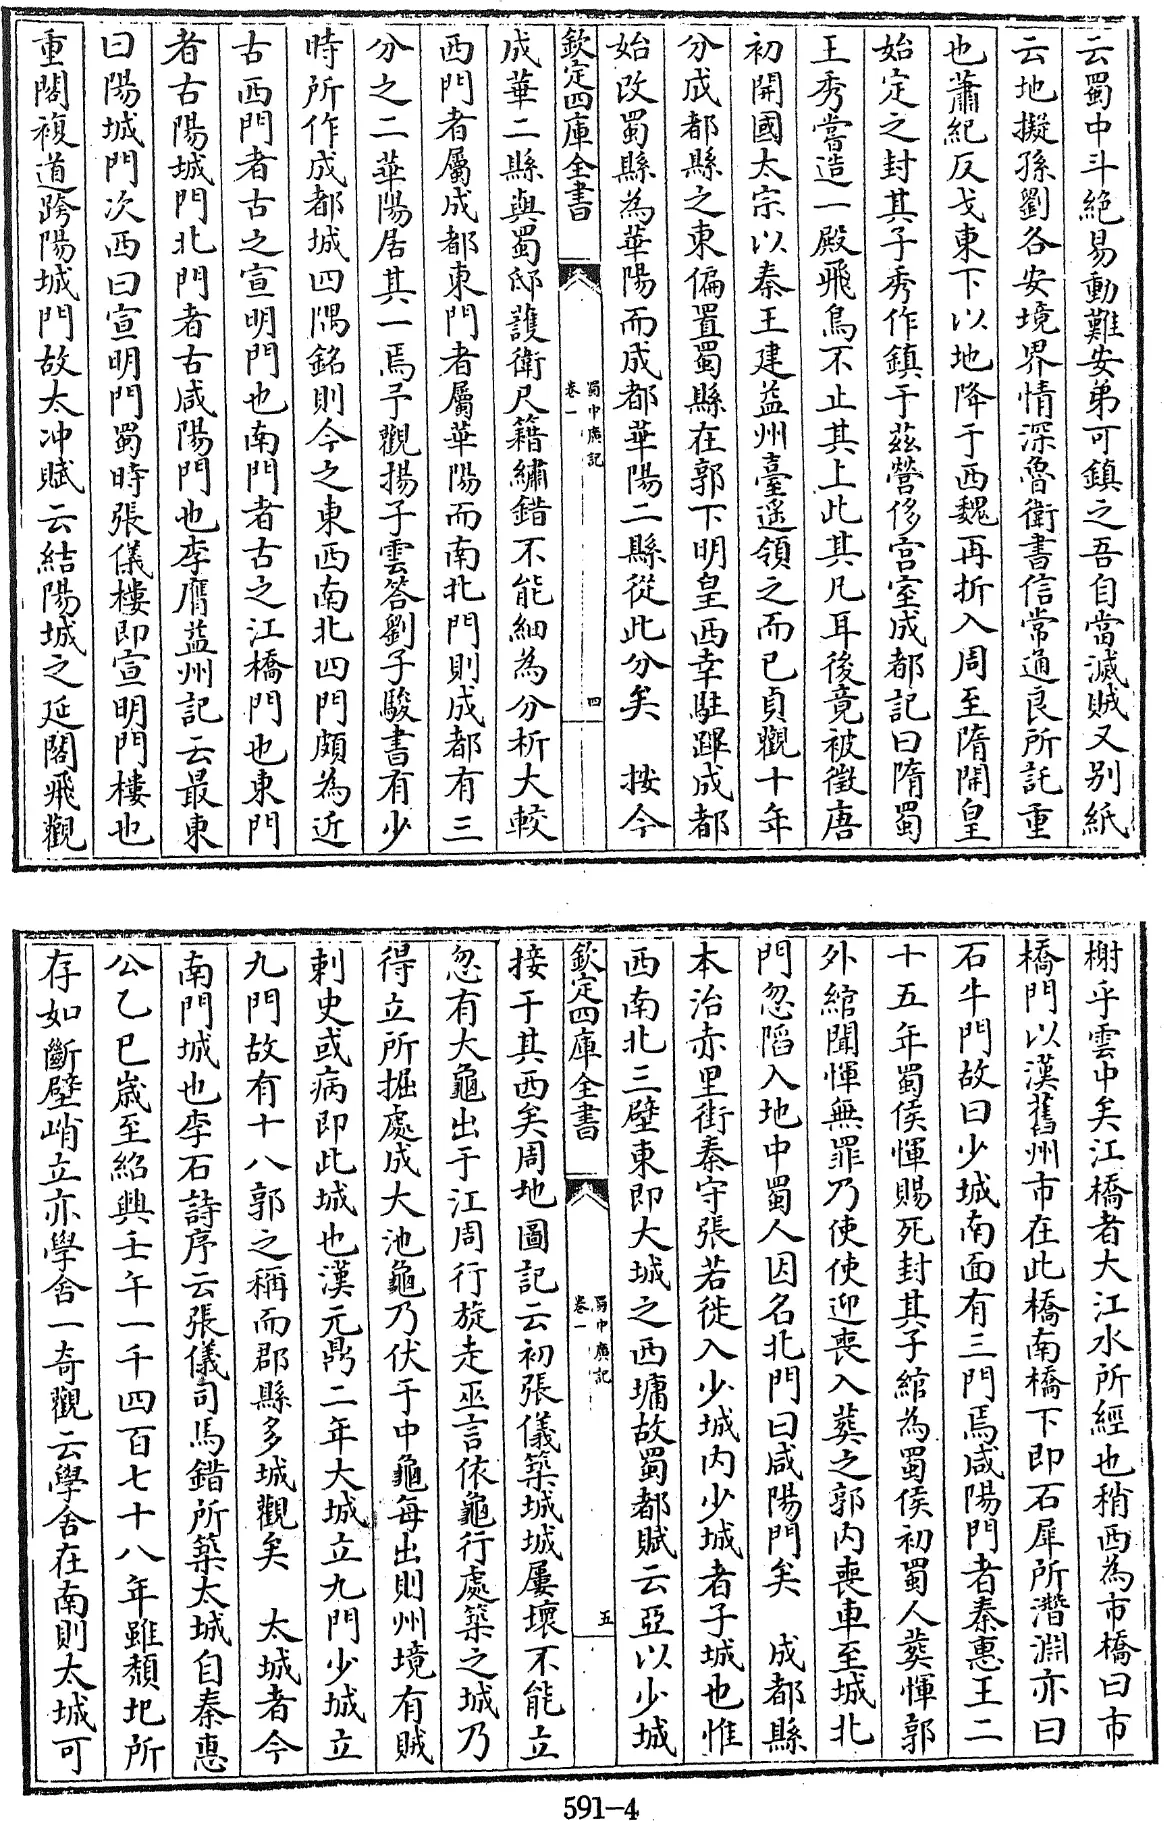 云蜀中斗絶易動難安弟可鎮之吾自當滅賊又别紙
云地擬孫劉各安境界情深魯衛書信常通良所託重
也蕭紀反戈東下以地降于西魏再折入周至隋開皇
始定之封其子秀作鎮于兹營侈宫室成都記曰隋蜀
王秀嘗造一殿飛鳥不止其上此其凡耳後竟被徵唐
初開國太宗以秦王建益州臺遥領之而已貞觀十年
分成都縣之東偏置蜀縣在郭下明皇西幸駐蹕成都
始改蜀縣為華陽而成都華陽二縣從此分矣　按今
欽定四庫全書
蜀中廣記
卷一
四
成華二縣與蜀邸護衛尺籍繡錯不能細為分析大較
西門者屬成都東門者屬華陽而南北門則成都有三
分之二華陽居其一焉予觀揚子雲答劉子駿書有少
時所作成都城四隅銘則今之東西南北四門頗為近
古西門者古之宣明門也南門者古之江橋門也東門
者古陽城門北門者古咸陽門也李膺益州記云最東
曰陽城門次西曰宣明門蜀時張儀樓即宣明門樓也
重閣複道跨陽城門故太冲賦云結陽城之延閣飛觀
榭乎雲中矣江橋者大江水所經也稍西為市橋曰市
橋門以漢舊州市在此橋南橋下即石犀所潛淵亦曰
石牛門故曰少城南面有三門焉咸陽門者秦惠王二
十五年蜀侯惲賜死封其子綰為蜀侯初蜀人葬惲郭
外綰聞惲無罪乃使使迎喪入葬之郭内喪車至城北
門忽陷入地中蜀人因名北門曰咸陽門矣　成都縣
本治赤里街秦守張若徙入少城内少城者子城也惟
西南北三壁東即大城之西墉故蜀都賦云亞以少城
欽定四庫全書
蜀中廣記
卷一
五
接于其西矣周地圖記云初張儀築城城屢壞不能立
忽有大龜出于江周行旋走巫言依龜行處築之城乃
得立所掘處成大池龜乃伏于中龜每出則州境有賊
刺史或病即此城也漢元鼎二年大城立九門少城立
九門故有十八郭之稱而郡縣多城觀矣　太城者今
南門城也李石詩序云張儀司馬錯所築太城自秦惠
公乙巳歲至紹興壬午一千四百七十八年雖頽圯所
存如斷壁峭立亦學舍一奇觀云學舍在南則太城可
591-4